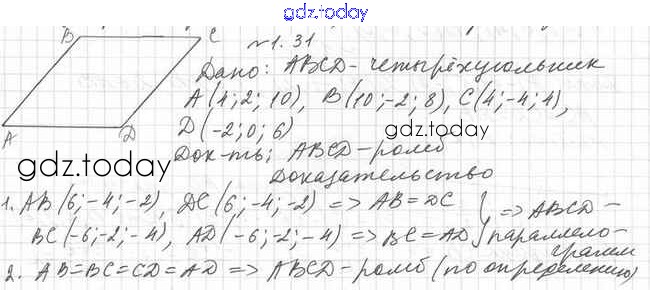 gdz.today
№1.31
B C
Дано: ABCD - четырёхугольник
A(4; 2; 10), B(10; -2; 8), C(4; -4; 4),
D(-2; 0; 6)
gdz.today
A D
Док-ть: ABCD - ромб
gdz.today
Доказательство
1. AB(6; -4; -2), DC(6; -4; -2) => AB = DC } => ABCD -
BC(-6; -2; -4), AD(-6; -2; -4) => BC = AD параллело-
грамм
2. AB=BC=CD=AD => ABCD - ромб (по определению)